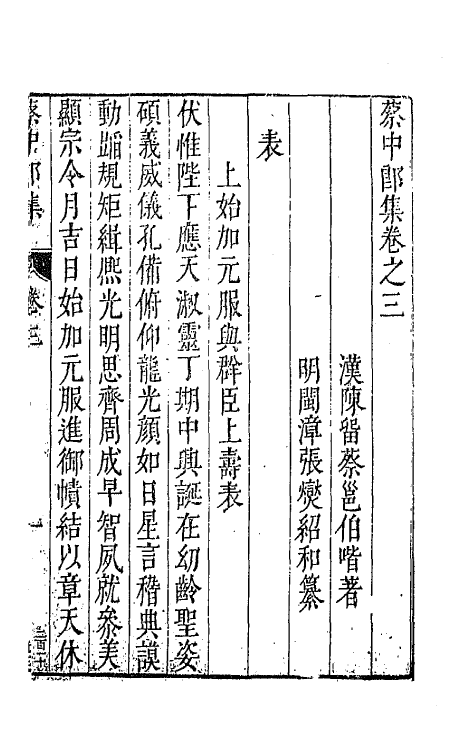 蔡中郎集卷之三
漢陳留蔡邕伯喈著
明閩漳張爕紹和纂
表
上始加元服與群臣上壽表
伏惟陛下應天淑靈丁期中興誕在幼齡聖姿
碩義威儀孔備俯仰龍光顔如日星言稽典謨
動蹈規矩緝熈光明思齊周成早智夙就叅美
顯宗令月吉日始加元服進御幘結以章天休
蔡中郎集
卷三
一